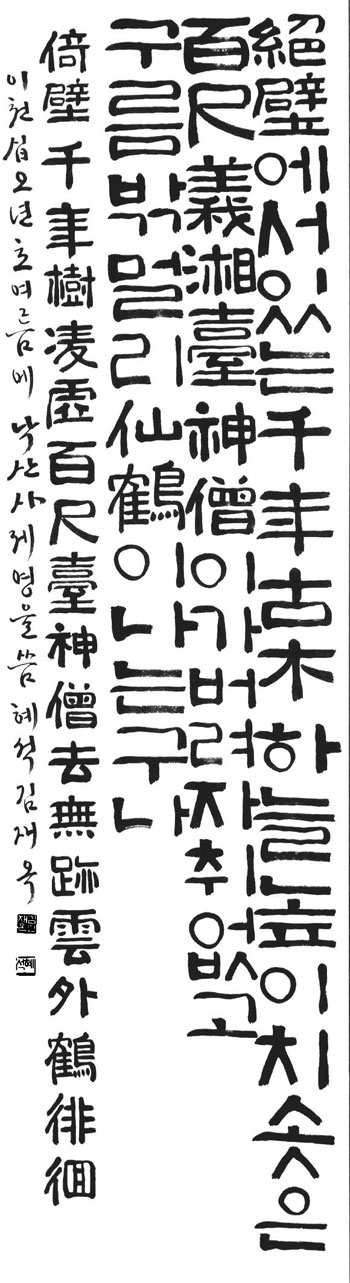 絕壁에서있는千年古木하늘높이치솟은
百尺義湘臺神僧이가버려자취없고
구름밖멀리仙鶴이나는구나
倚壁千年樹凌虛百尺臺神僧去無跡雲外鶴徘徊
이천십오년 초여름에 낙산사제영을 씀 혜석
혜석